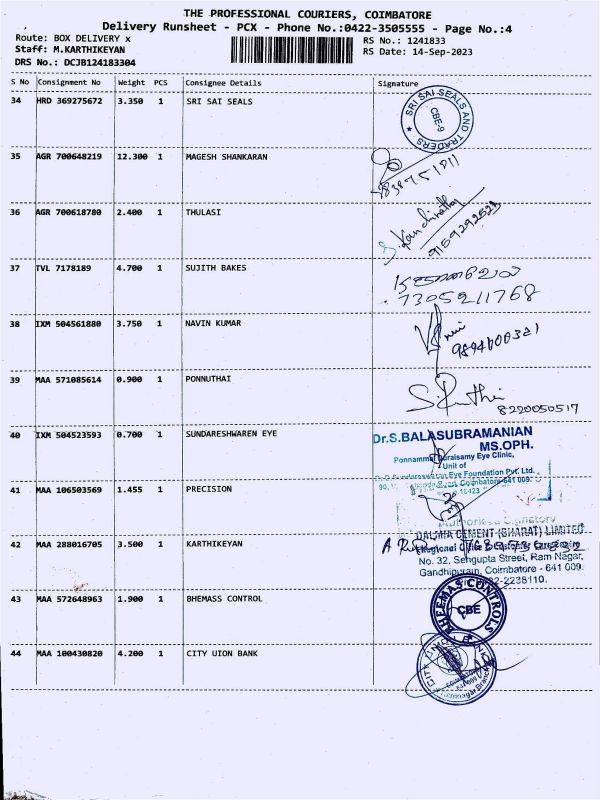 THE PROFESSIONAL COURIERS, COIMBATORE
Delivery Runsheet - PCX - Phone No.:0422-3505555 - Page No.:4
Route: BOX DELIVERY x
Staff: M.KARTHIKEYAN
DRS No.: DCJB124183304
RS No.: 1241833
RS Date: 14-Sep-2023
S No Consignment No Weight PCS Consignee Details Signature
34 HRD 369275672 3.350 1 SRI SAI SEALS
SRI SAI SEALS AND TRADERS
CBE-9
35 AGR 700648219 12.300 1 MAGESH SHANKARAN
36 AGR 700618780 2.400 1 THULASI
37 TVL 7178189 4.700 1 SUJITH BAKES
7305211768
38 IXM 504561880 3.750 1 NAVIN KUMAR
39 MAA 571085614 0.900 1 PONNUTHAI
8220050517
40 IXM 504523593 0.700 1 SUNDARESHWAREN EYE
Dr.S.BALASUBRAMANIAN
MS.OPH.
Unit of
Eye Foundation Pvt. Ltd.
41 MAA 106503569 1.455 1 PRECISION
Authorised Signatory
DALMIA CEMENT (BHARAT) LIMITED
42 MAA 288016705 3.500 1 KARTHIKEYAN
No. 32, Sengupta Street, Ram Nagar,
Gandhipuram, Coimbatore - 641 009.
43 MAA 572648963 1.900 1 BHEMASS CONTROL
BHEEMAS CONTROLS
CBE
44 MAA 100430820 4.200 1 CITY UION BANK